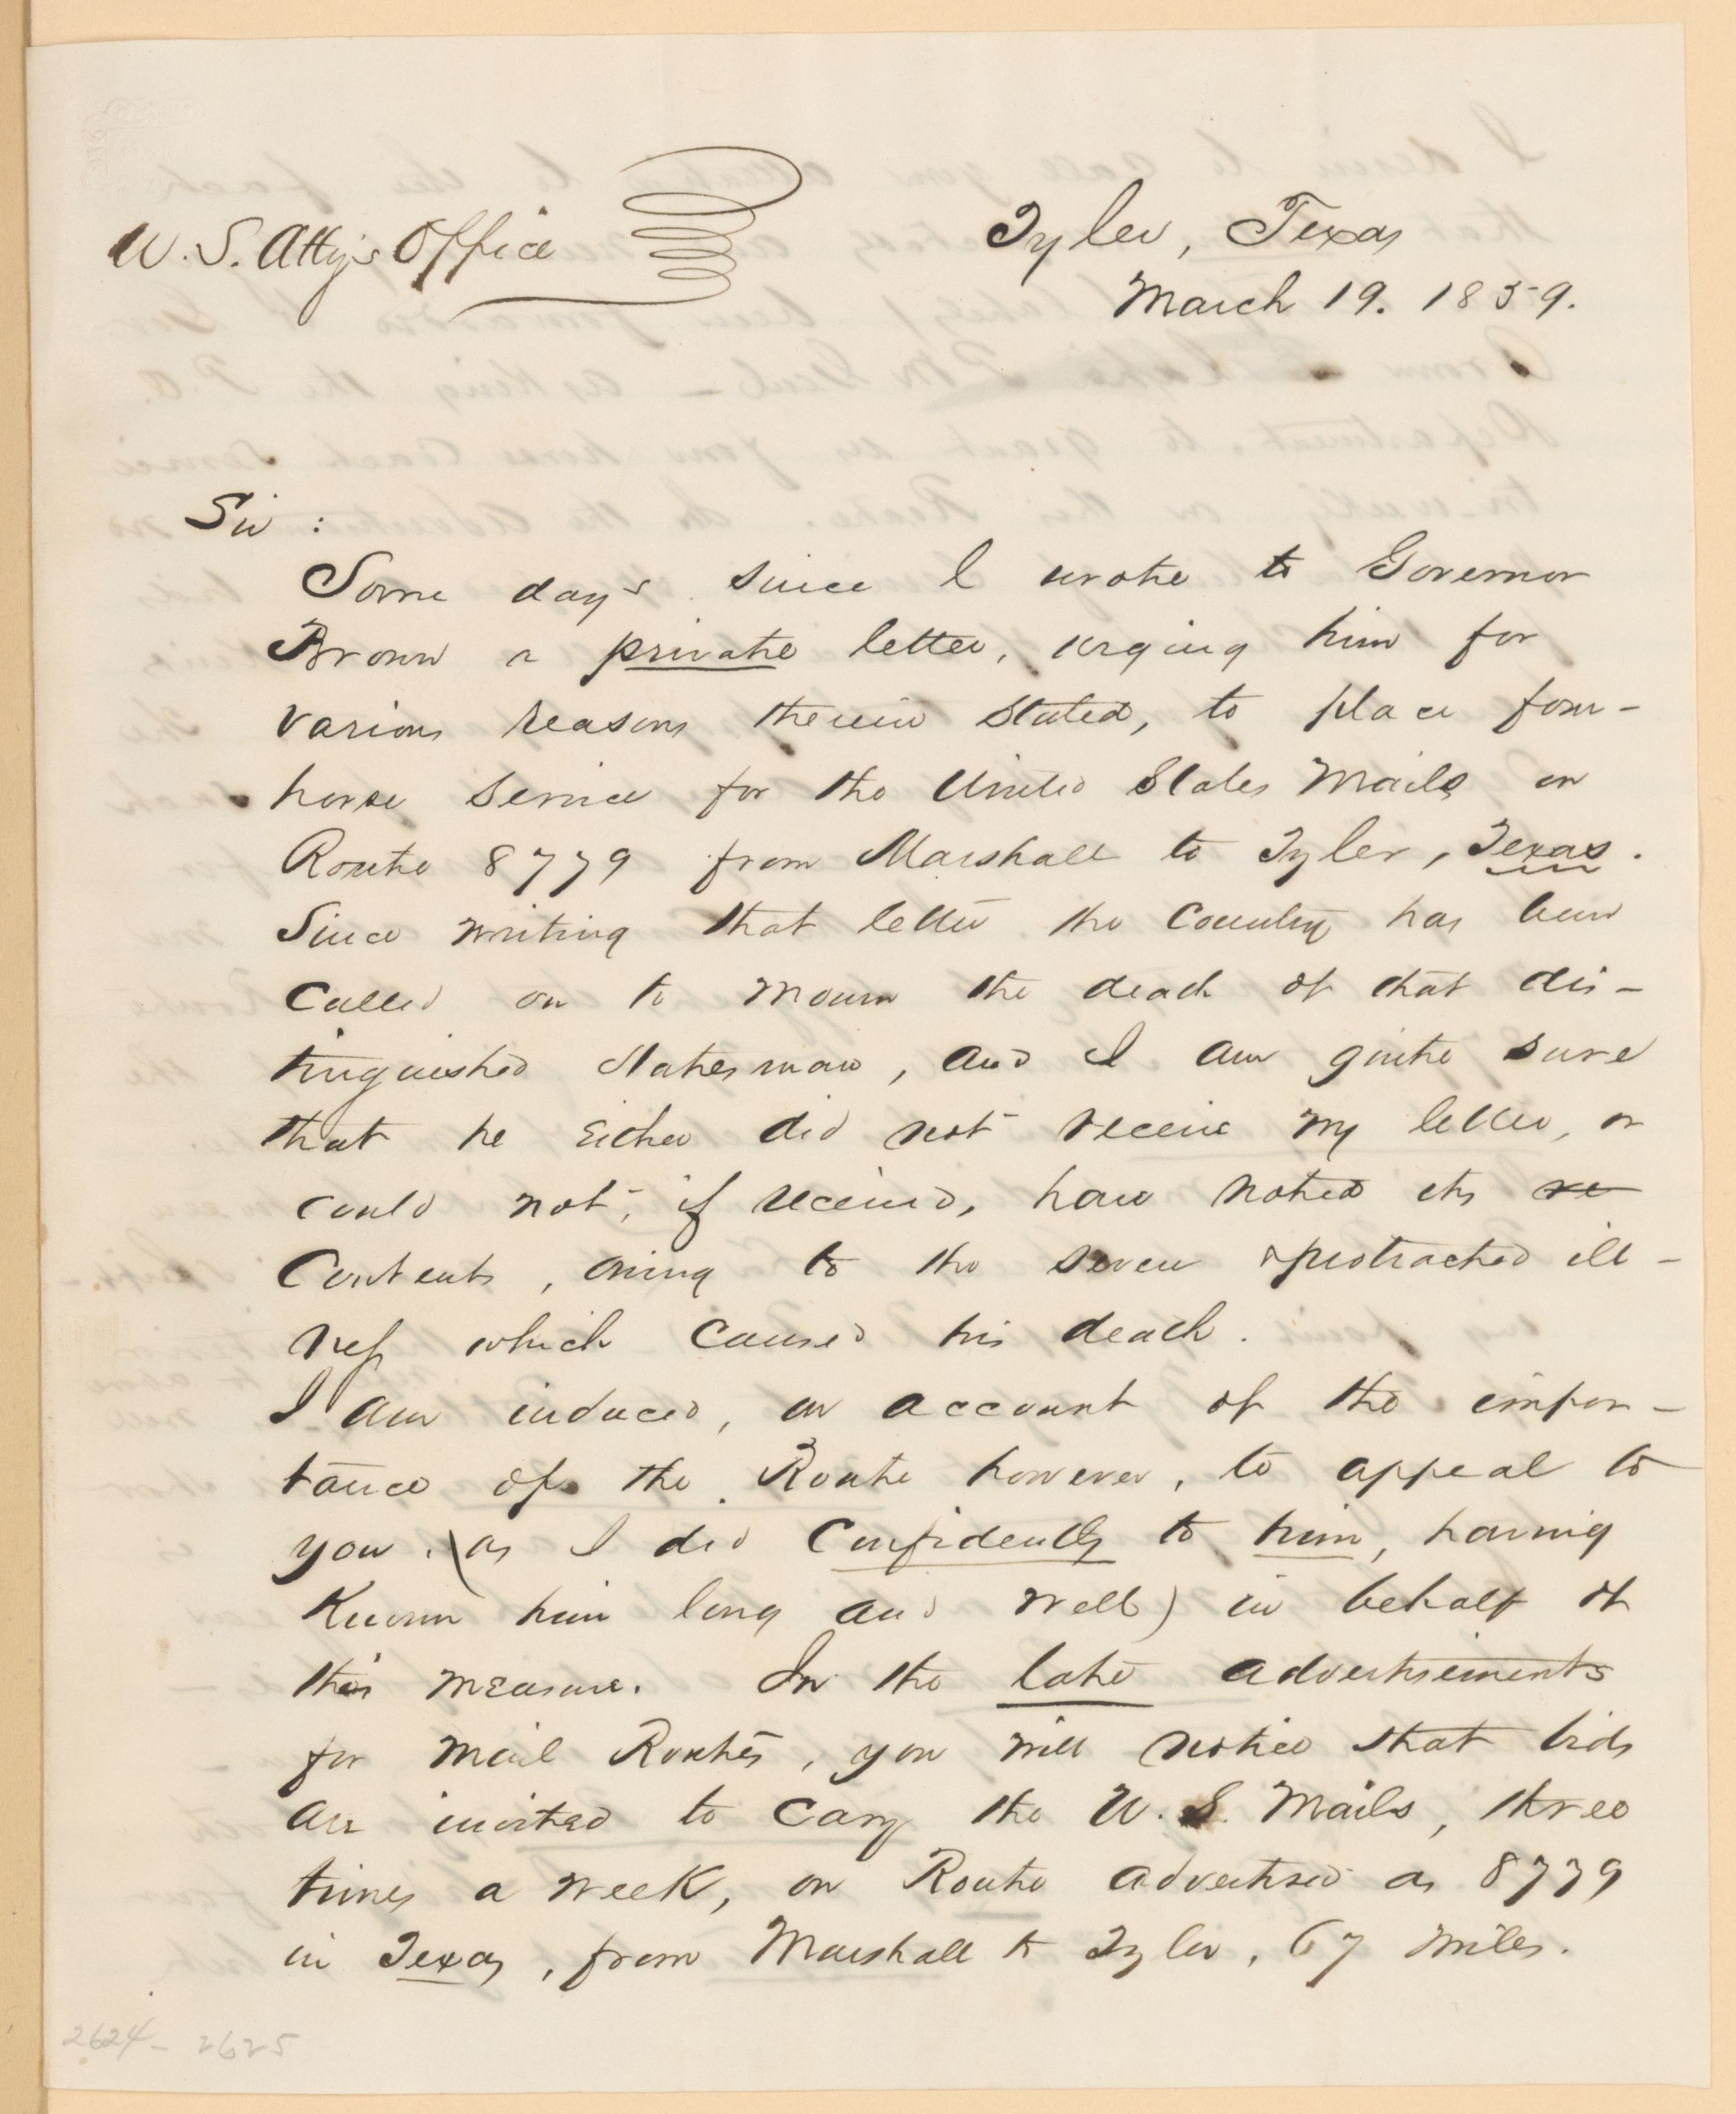 U. S. Atty's Office
Tyler, Texas
March 19. 1859.
Sir :
Some days since I wrote to Governor
Brown a private letter, urging him for
various reasons therein stated, to place four-
horse service for the United States Mails on
Route 8779 from Marshall to Tyler, Texas.
Since writing that letter the Country has been
Called on to mourn the death of that dis-
tinguished statesman, and I am quite sure
that he either did not receive my letter, or
could not, if received, have noted its re
Contents, owing to the severe & protracted ill-
ness which caused his death.
I am induced, on account of the impor-
tance of the Route however, to appeal to
you, (as I did Confidently to him, having
Known him long and well) in behalf of
this measure. In the late advertisements
for Mail Routes, you will notice that bids
are invited to Carry the U. S. Mails, three
times a week, on Route advertised as 8779
in Texas, from Marshall to Tyler, 67 miles.
2624-2625